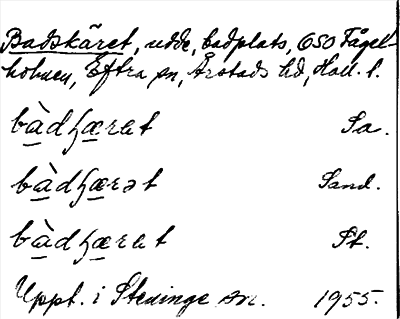 Badskäret, udde, badplats, 650 Fågel-
holmen, Eftra sn, Årstads hd, Hall. l.
bàdʃærat Sa.
bàdʃærət Sand.
bàdʃærat St.
Uppt. i Steninge sn. 1955.